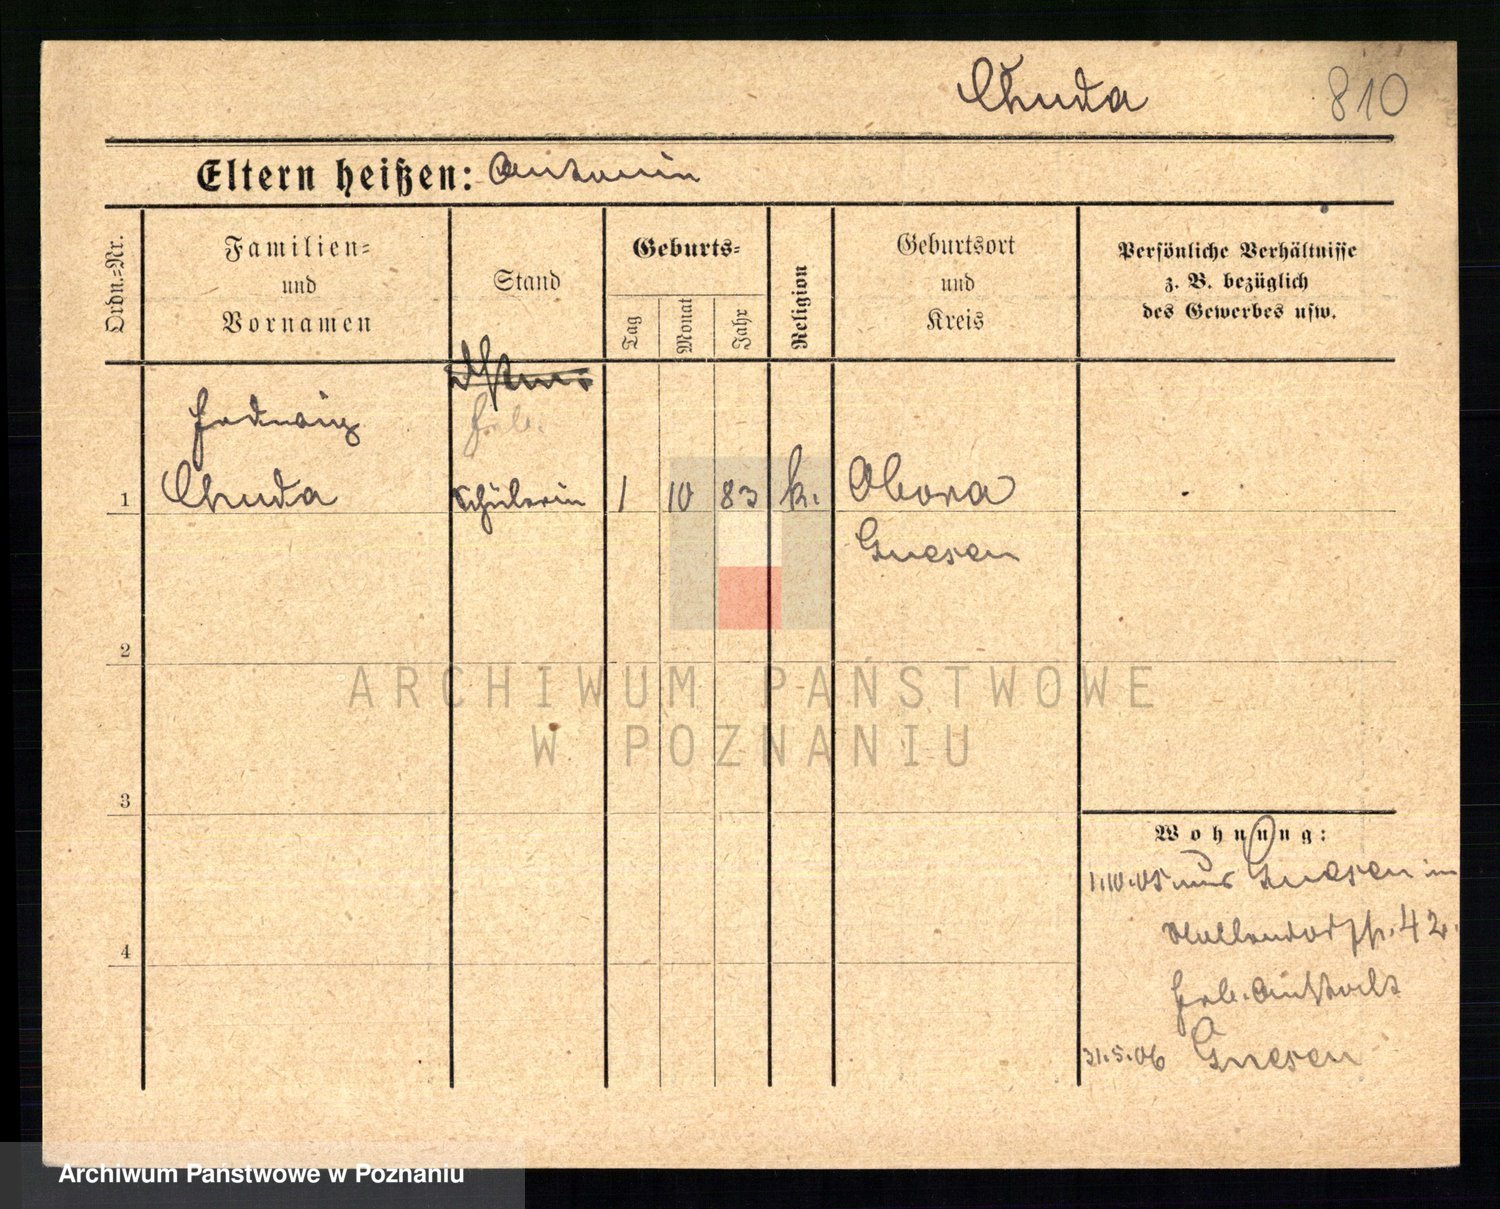 Chuda
810
Eltern heißen: Antonin
Ordn.=Nr.
Familien=
und
Vornamen
Stand
Geburts=
Tag
Monat
Jahr
Religion
Geburtsort
und
Kreis
Persönliche Verhältnisse
z. B. bezüglich
des Gewerbes usw.
Hedwig
1
Chuda
Schülerin
1
10
83
k.
Obora
Gnesen
2
3
4
Wohnung:
1.10.05 aus Gnesen in
42.
Anstalt
31.5.06 Gnesen
ARCHIWUM PAŃSTWOWE
W POZNANIU
Archiwum Państwowe w Poznaniu